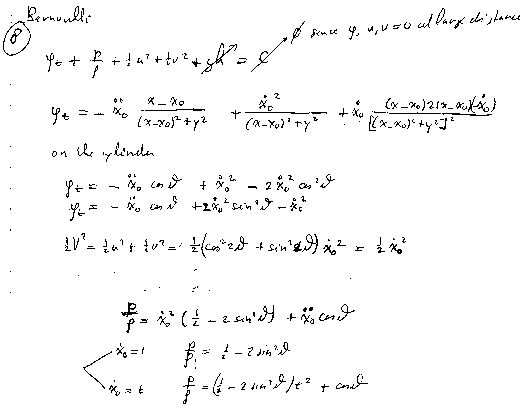 Bernoulli
8
φ_t + p/ρ + ½u² + ½v² + gh = C → 0 since φ, u, v = 0 at large distance
φ_t = - ẍ₀ (x-x₀)/((x-x₀)²+y²) + ẋ₀²/((x-x₀)²+y²) + ẋ₀ (x-x₀)2(x-x₀)(-ẋ₀)/[(x-x₀)²+y²]²
on the cylinder
φ_t = - ẍ₀ cos ϑ + ẋ₀² - 2ẋ₀² cos²ϑ
φ_t = - ẍ₀ cos ϑ + 2ẋ₀² sin²ϑ - ẋ₀²
½V² = ½u² + ½v² = ½(cos²2ϑ + sin²2ϑ) ẋ₀² = ½ ẋ₀²
p/ρ = ẋ₀² (½ - 2 sin²ϑ) + ẍ₀ cosϑ
ẋ₀ = 1 p/ρ = ½ - 2 sin²ϑ
ẋ₀ = t p/ρ = (½ - 2 sin²ϑ) t² + cosϑ